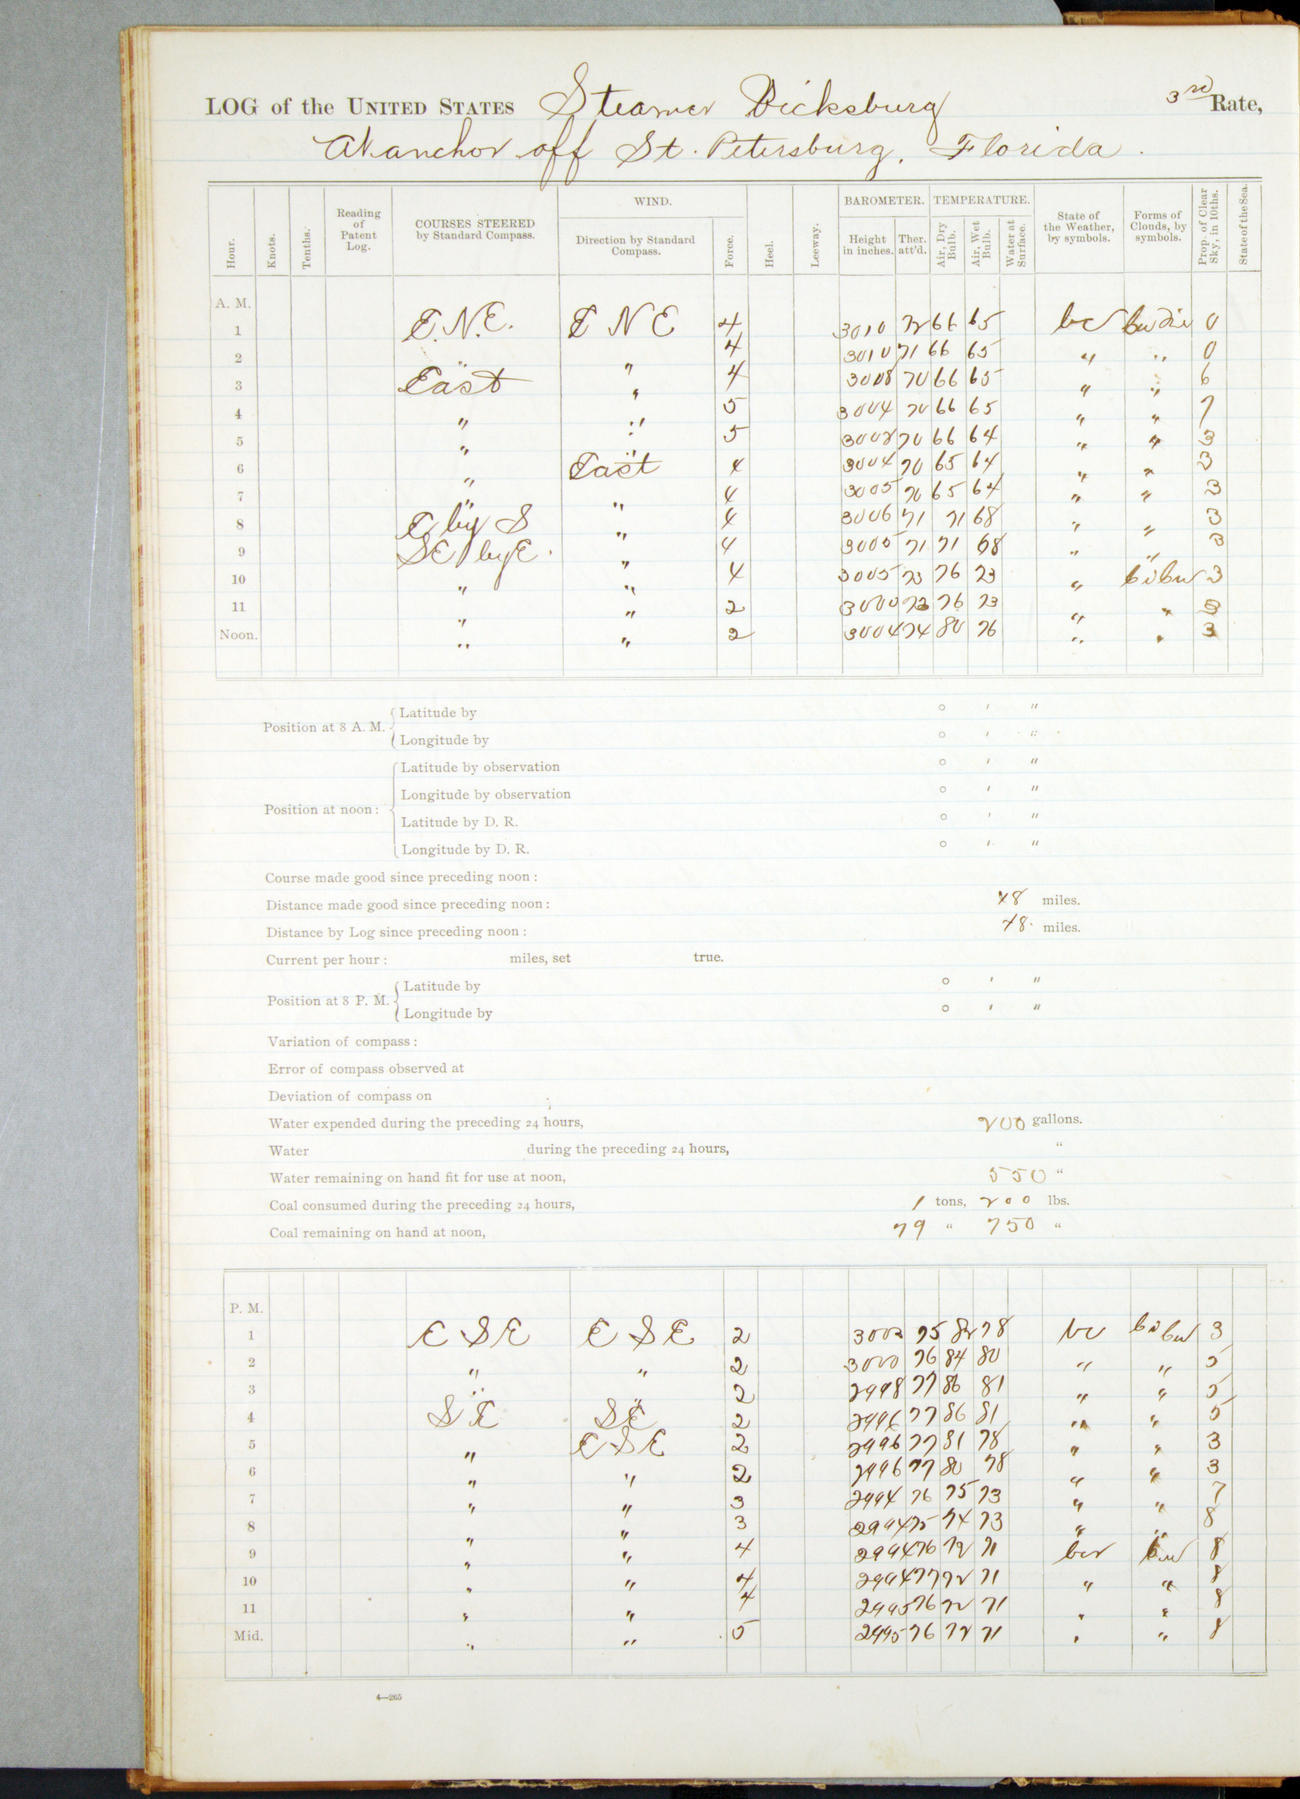 LOG of the UNITED STATES Steamer Vicksburg 3rd Rate,
At anchor off St. Petersburg, Florida.
Hour. Knots. Tenths. Reading of Patent Log. COURSES STEERED by Standard Compass. WIND. Direction by Standard Compass. Force. Heel. Leeway. BAROMETER. Height in inches. Ther. att'd. TEMPERATURE. Air, Dry Bulb. Air, Wet Bulb. Water at Surface. State of the Weather, by symbols. Forms of Clouds, by symbols. Prop. of Clear Sky, in 10ths. State of the Sea.
A. M.
1 E.N.E. E N E 4 3010 72 66 65 bc 0
2 " " 4 3010 71 66 65 " " 0
3 East " 4 3008 70 66 65 " " 6
4 " " 5 3004 70 66 65 " " 7
5 " " 5 3002 70 66 64 " " 3
6 " East 4 3004 70 65 64 " " 3
7 " " 4 3005 70 65 64 " " 3
8 E by S " 4 3006 71 71 68 " " 3
9 SE by E. " 4 3005 71 71 68 " " 3
10 " " 4 3005 73 76 73 " 3
11 " " 2 3000 73 76 73 " " 3
Noon. " " 2 3004 74 80 76 " " 3
Position at 8 A. M. Latitude by ° ' "
Longitude by ° ' "
Position at noon: Latitude by observation ° ' "
Longitude by observation ° ' "
Latitude by D. R. ° ' "
Longitude by D. R. ° ' "
Course made good since preceding noon:
Distance made good since preceding noon: 48 miles.
Distance by Log since preceding noon: 48. miles.
Current per hour: miles, set true.
Position at 8 P. M. Latitude by ° ' "
Longitude by ° ' "
Variation of compass:
Error of compass observed at
Deviation of compass on
Water expended during the preceding 24 hours, 200 gallons.
Water during the preceding 24 hours, "
Water remaining on hand fit for use at noon, 550 "
Coal consumed during the preceding 24 hours, 1 tons, 200 lbs.
Coal remaining on hand at noon, 79 " 750 "
P. M.
1 E S E E S E 2 3002 75 82 78 bc 3
2 " " 2 3000 76 84 80 " " 5
3 " " 2 2998 77 86 81 " " 5
4 SE SE 2 2996 77 86 81 " " 5
5 " E S E 2 2996 77 81 78 " " 3
6 " " 2 2996 77 80 78 " " 3
7 " " 3 2994 76 75 73 " " 7
8 " " 3 2994 75 74 73 " " 8
9 " " 4 2994 76 72 71 8
10 " " 4 2994 77 72 71 " " 8
11 " " 4 2995 76 72 71 " " 8
Mid. " " 5 2995 76 72 71 " " 8
4—265